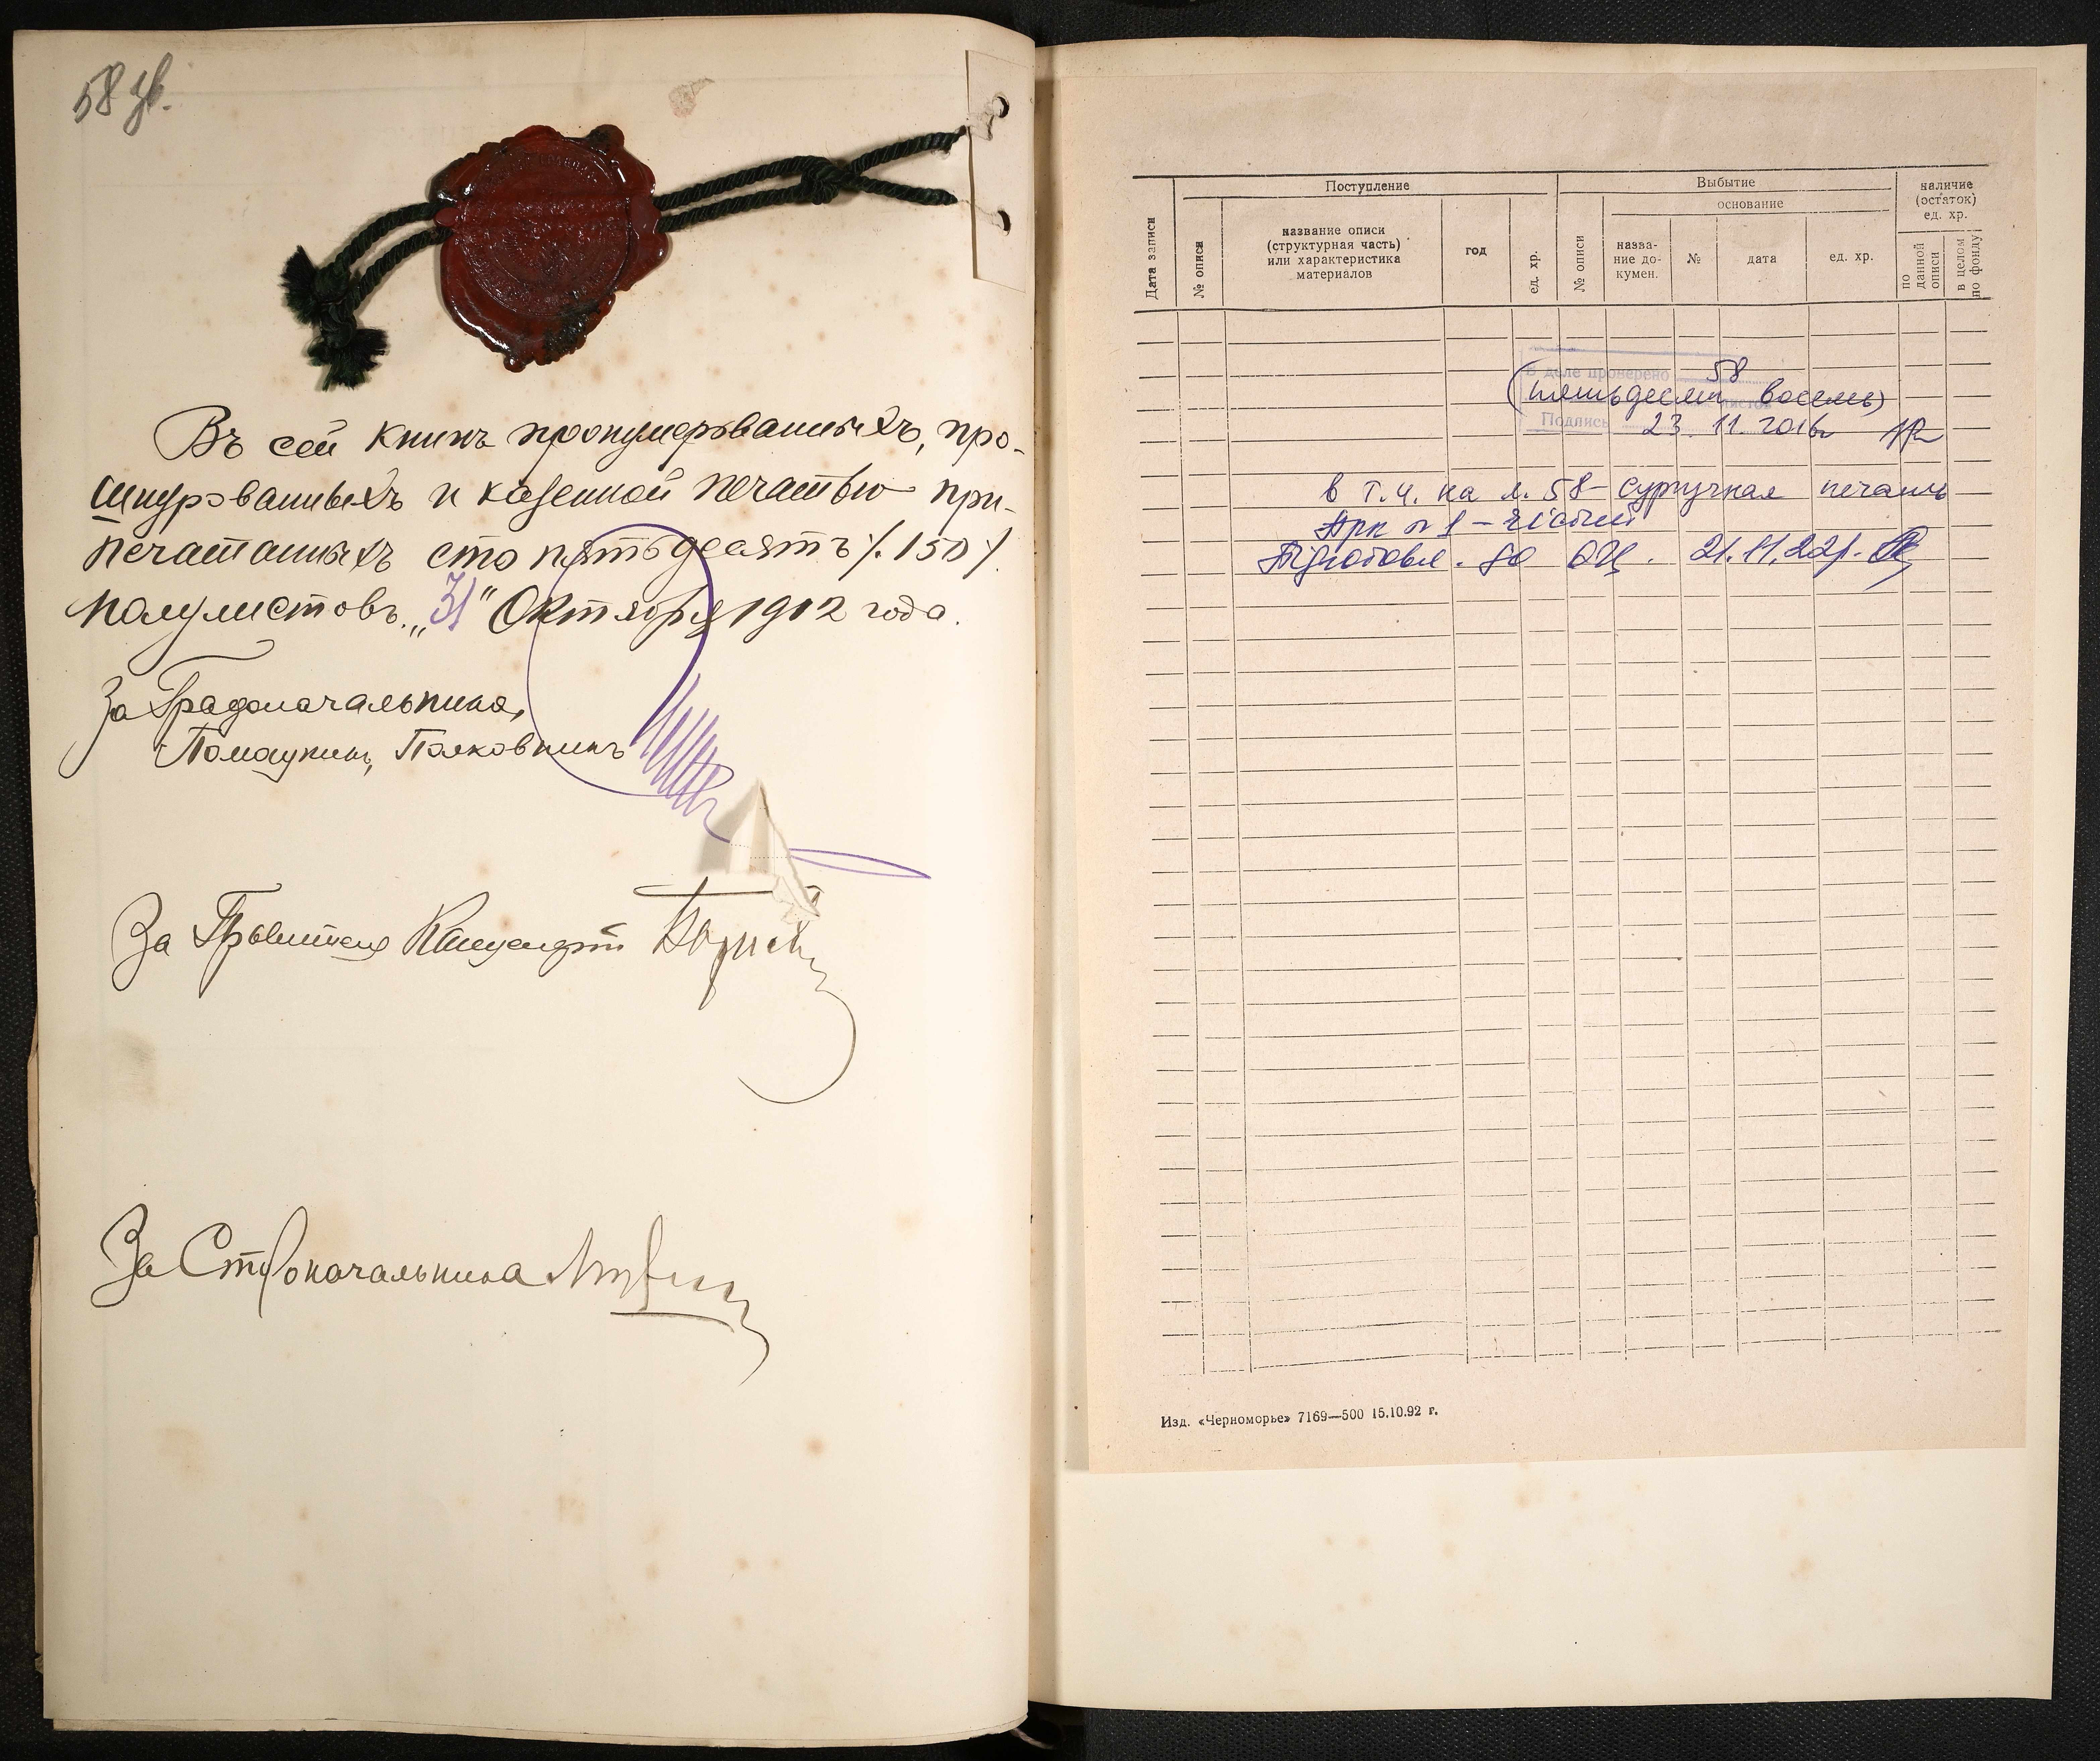 58 зв.
Въ сей книгѣ пронумерованныхъ, про-
шнурованныхъ и казенной печатью при-
печатанныхъ сто пятьдесятъ ./. 150 ./.
полулистовъ. „31" Октября 1912 года.
За Градоначальника,
Помощникъ, Полковникъ
За Правителя Канцеляріи
За Столоначальника
Поступление
Выбытие
наличие
(остаток)
ед. хр.
основание
Дата записи
№ описи
название описи
(структурная часть)
или характеристика
материалов
год
ед. хр.
№ описи
назва-
ние до-
кумен.
№
дата
ед. хр.
по
данной
описи
в целом
по фонду
В деле проверено 58
(пятьдесят восемь)
листов
Подпись
23.11.2016г
в т.ч. на л. 58 - сургучная печать
Арк № 1 - чистий
Підготовл. до ОЦ. 21.11.22р.
Изд. «Черноморье» 7169—500 15.10.92 г.